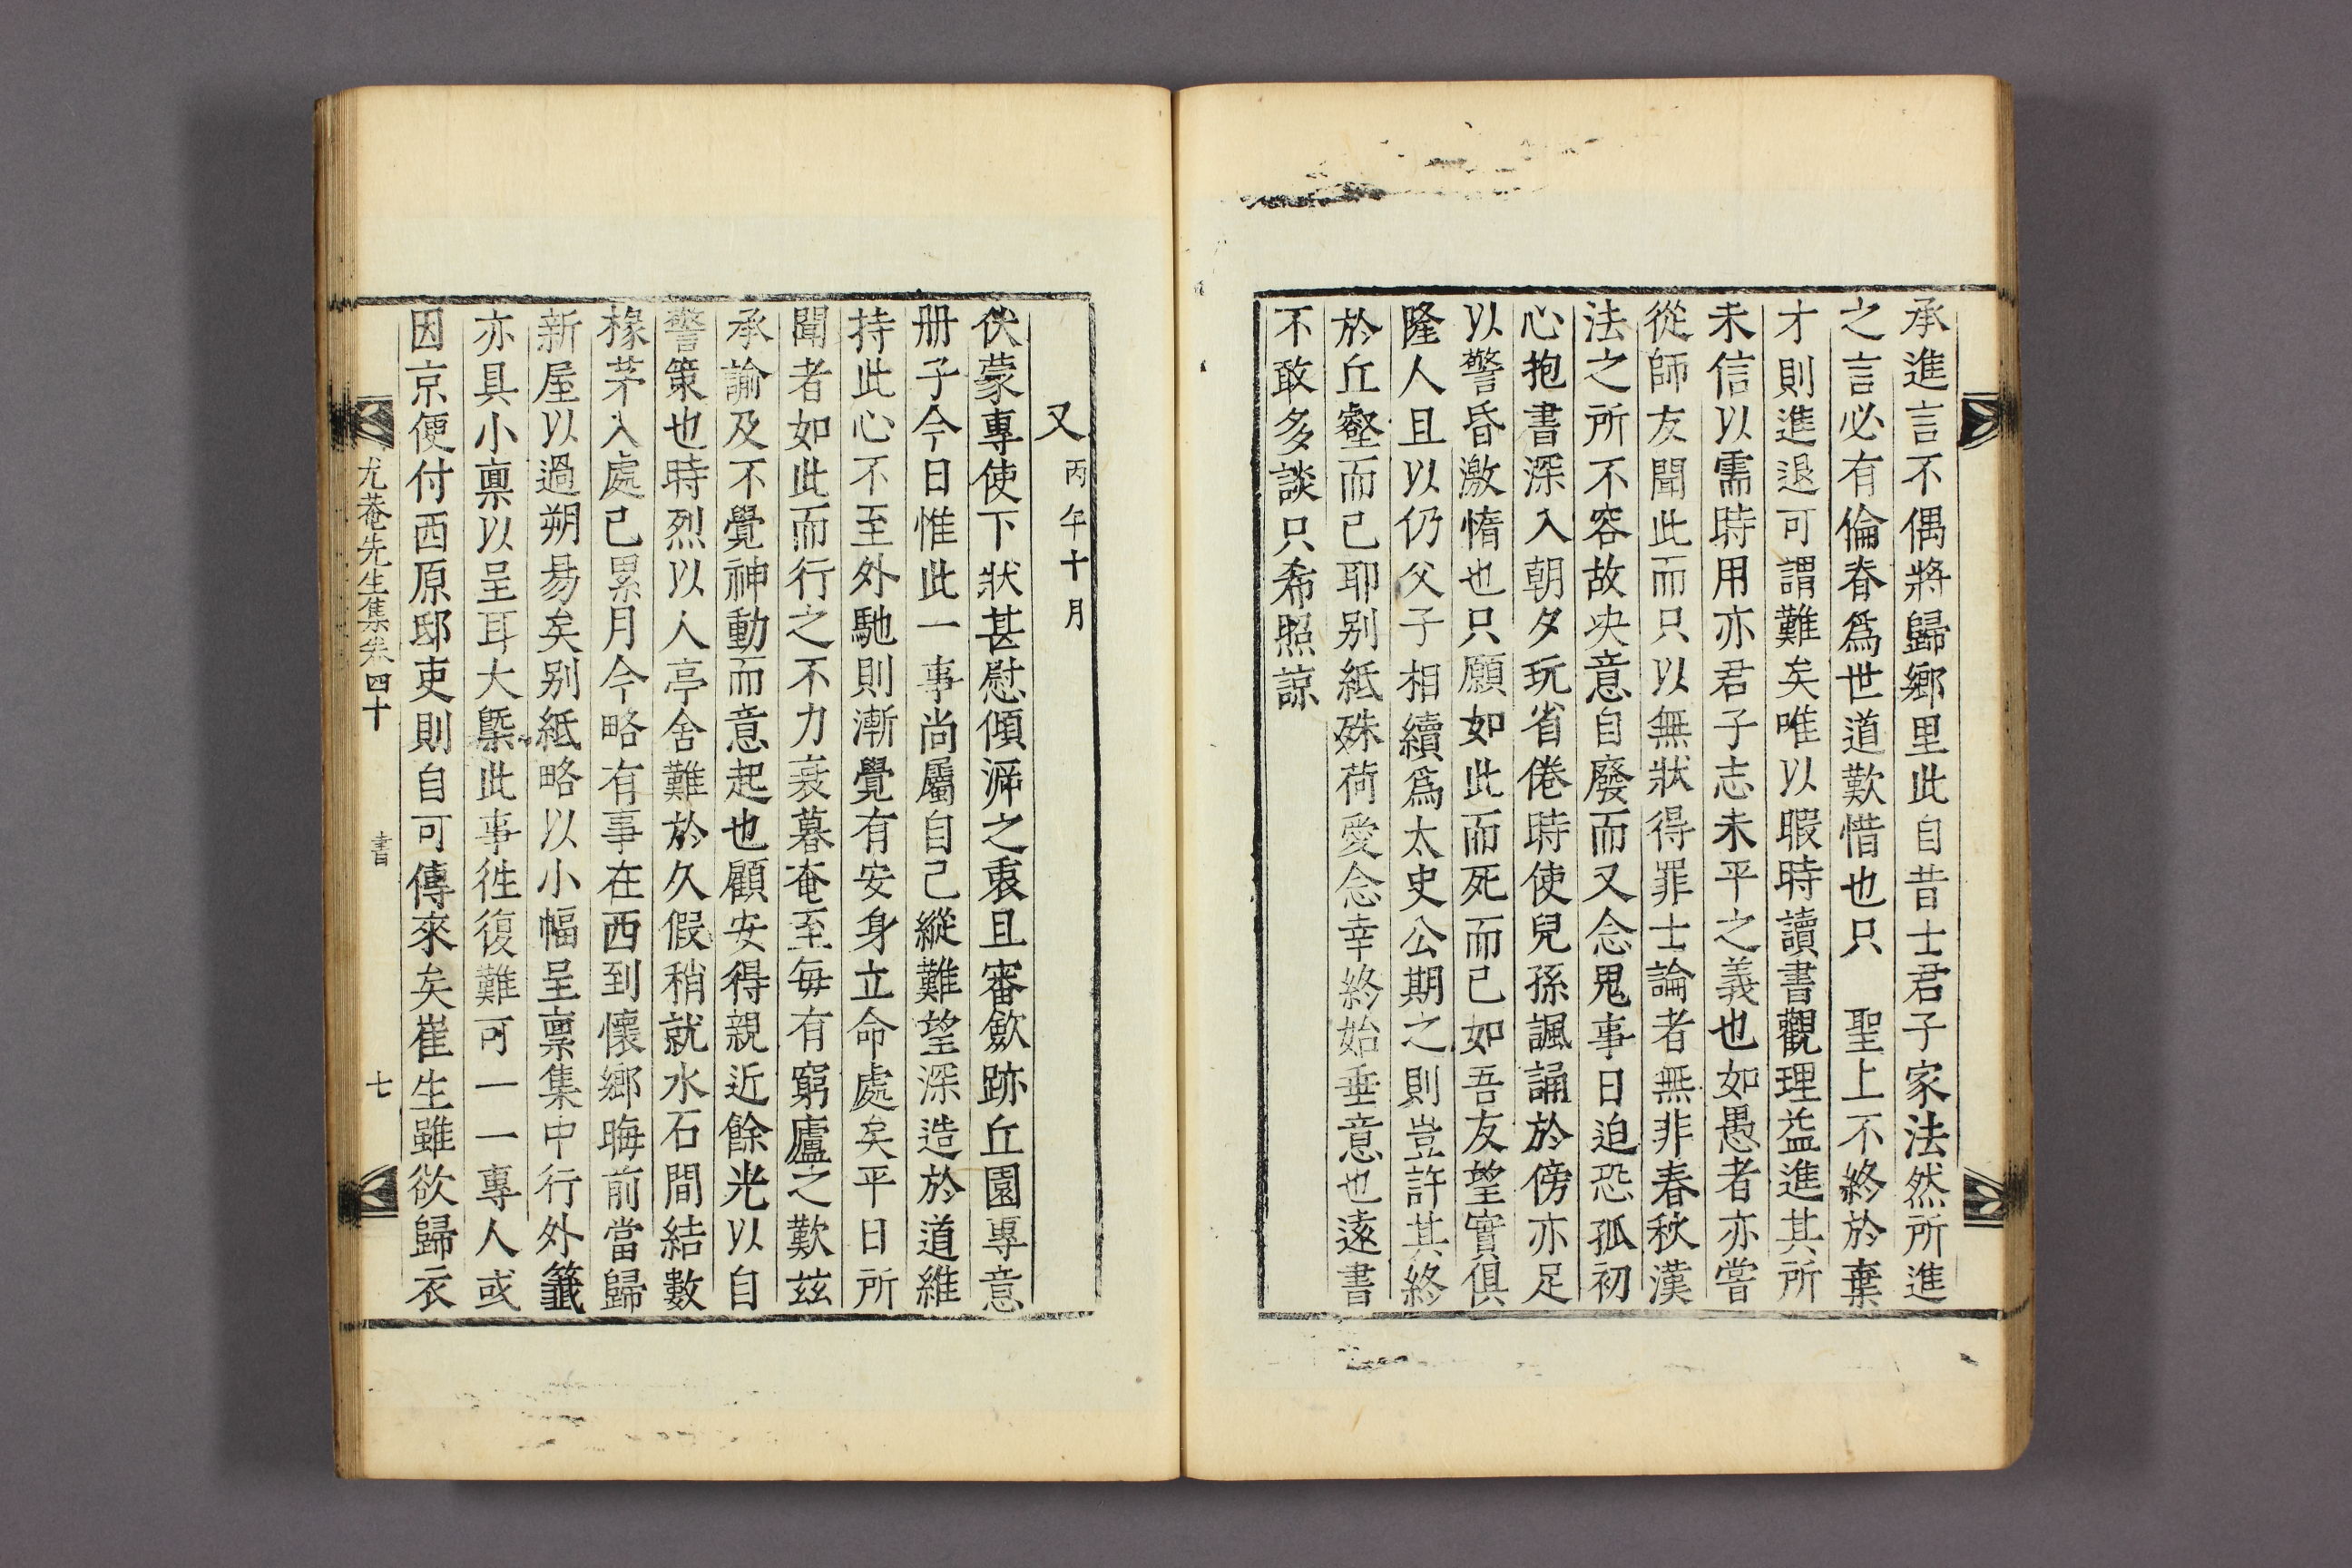 承進言不偶將歸鄉里此自昔士君子家法然所進
之言必有倫眷爲世道歎惜也只　聖上不終於棄
才則進退可謂難矣唯以暇時讀書觀理益進其所
未信以需時用亦君子志未平之義也如愚者亦嘗
從師友聞此而只以無狀得罪士論者無非春秋漢
法之所不容故决意自廢而又念鬼事日迫恐孤初
心抱書深入朝夕玩省倦時使兒孫諷誦於傍亦足
以警昏激惰也只願如此而死而已如吾友望實俱
隆人且以仍父子相續爲太史公期之則豈許其終
於丘壑而已耶別紙殊荷愛念幸終始垂意也遠書
不敢多談只希照諒
又丙午十月
伏蒙專使下狀甚慰傾泝之衷且審歛跡丘園專意
册子今日惟此一事尚屬自己縱難望深造於道維
持此心不至外馳則漸覺有安身立命處矣平日所
聞者如此而行之不力衰暮奄至每有窮廬之歎玆
承諭及不覺神動而意起也顧安得親近餘光以自
警策也時烈以人亭舍難於久假稍就水石間結數
椽茅入處已累月今略有事在西到懷鄉晦前當歸
新屋以過朔易矣別紙略以小幅呈稟集中行外籤
亦具小稟以呈耳大槩此事徃復難可一一專人或
因京便付西原邸吏則自可傳來矣崔生雖欲歸衣
尤菴先生集卷四十
書
七